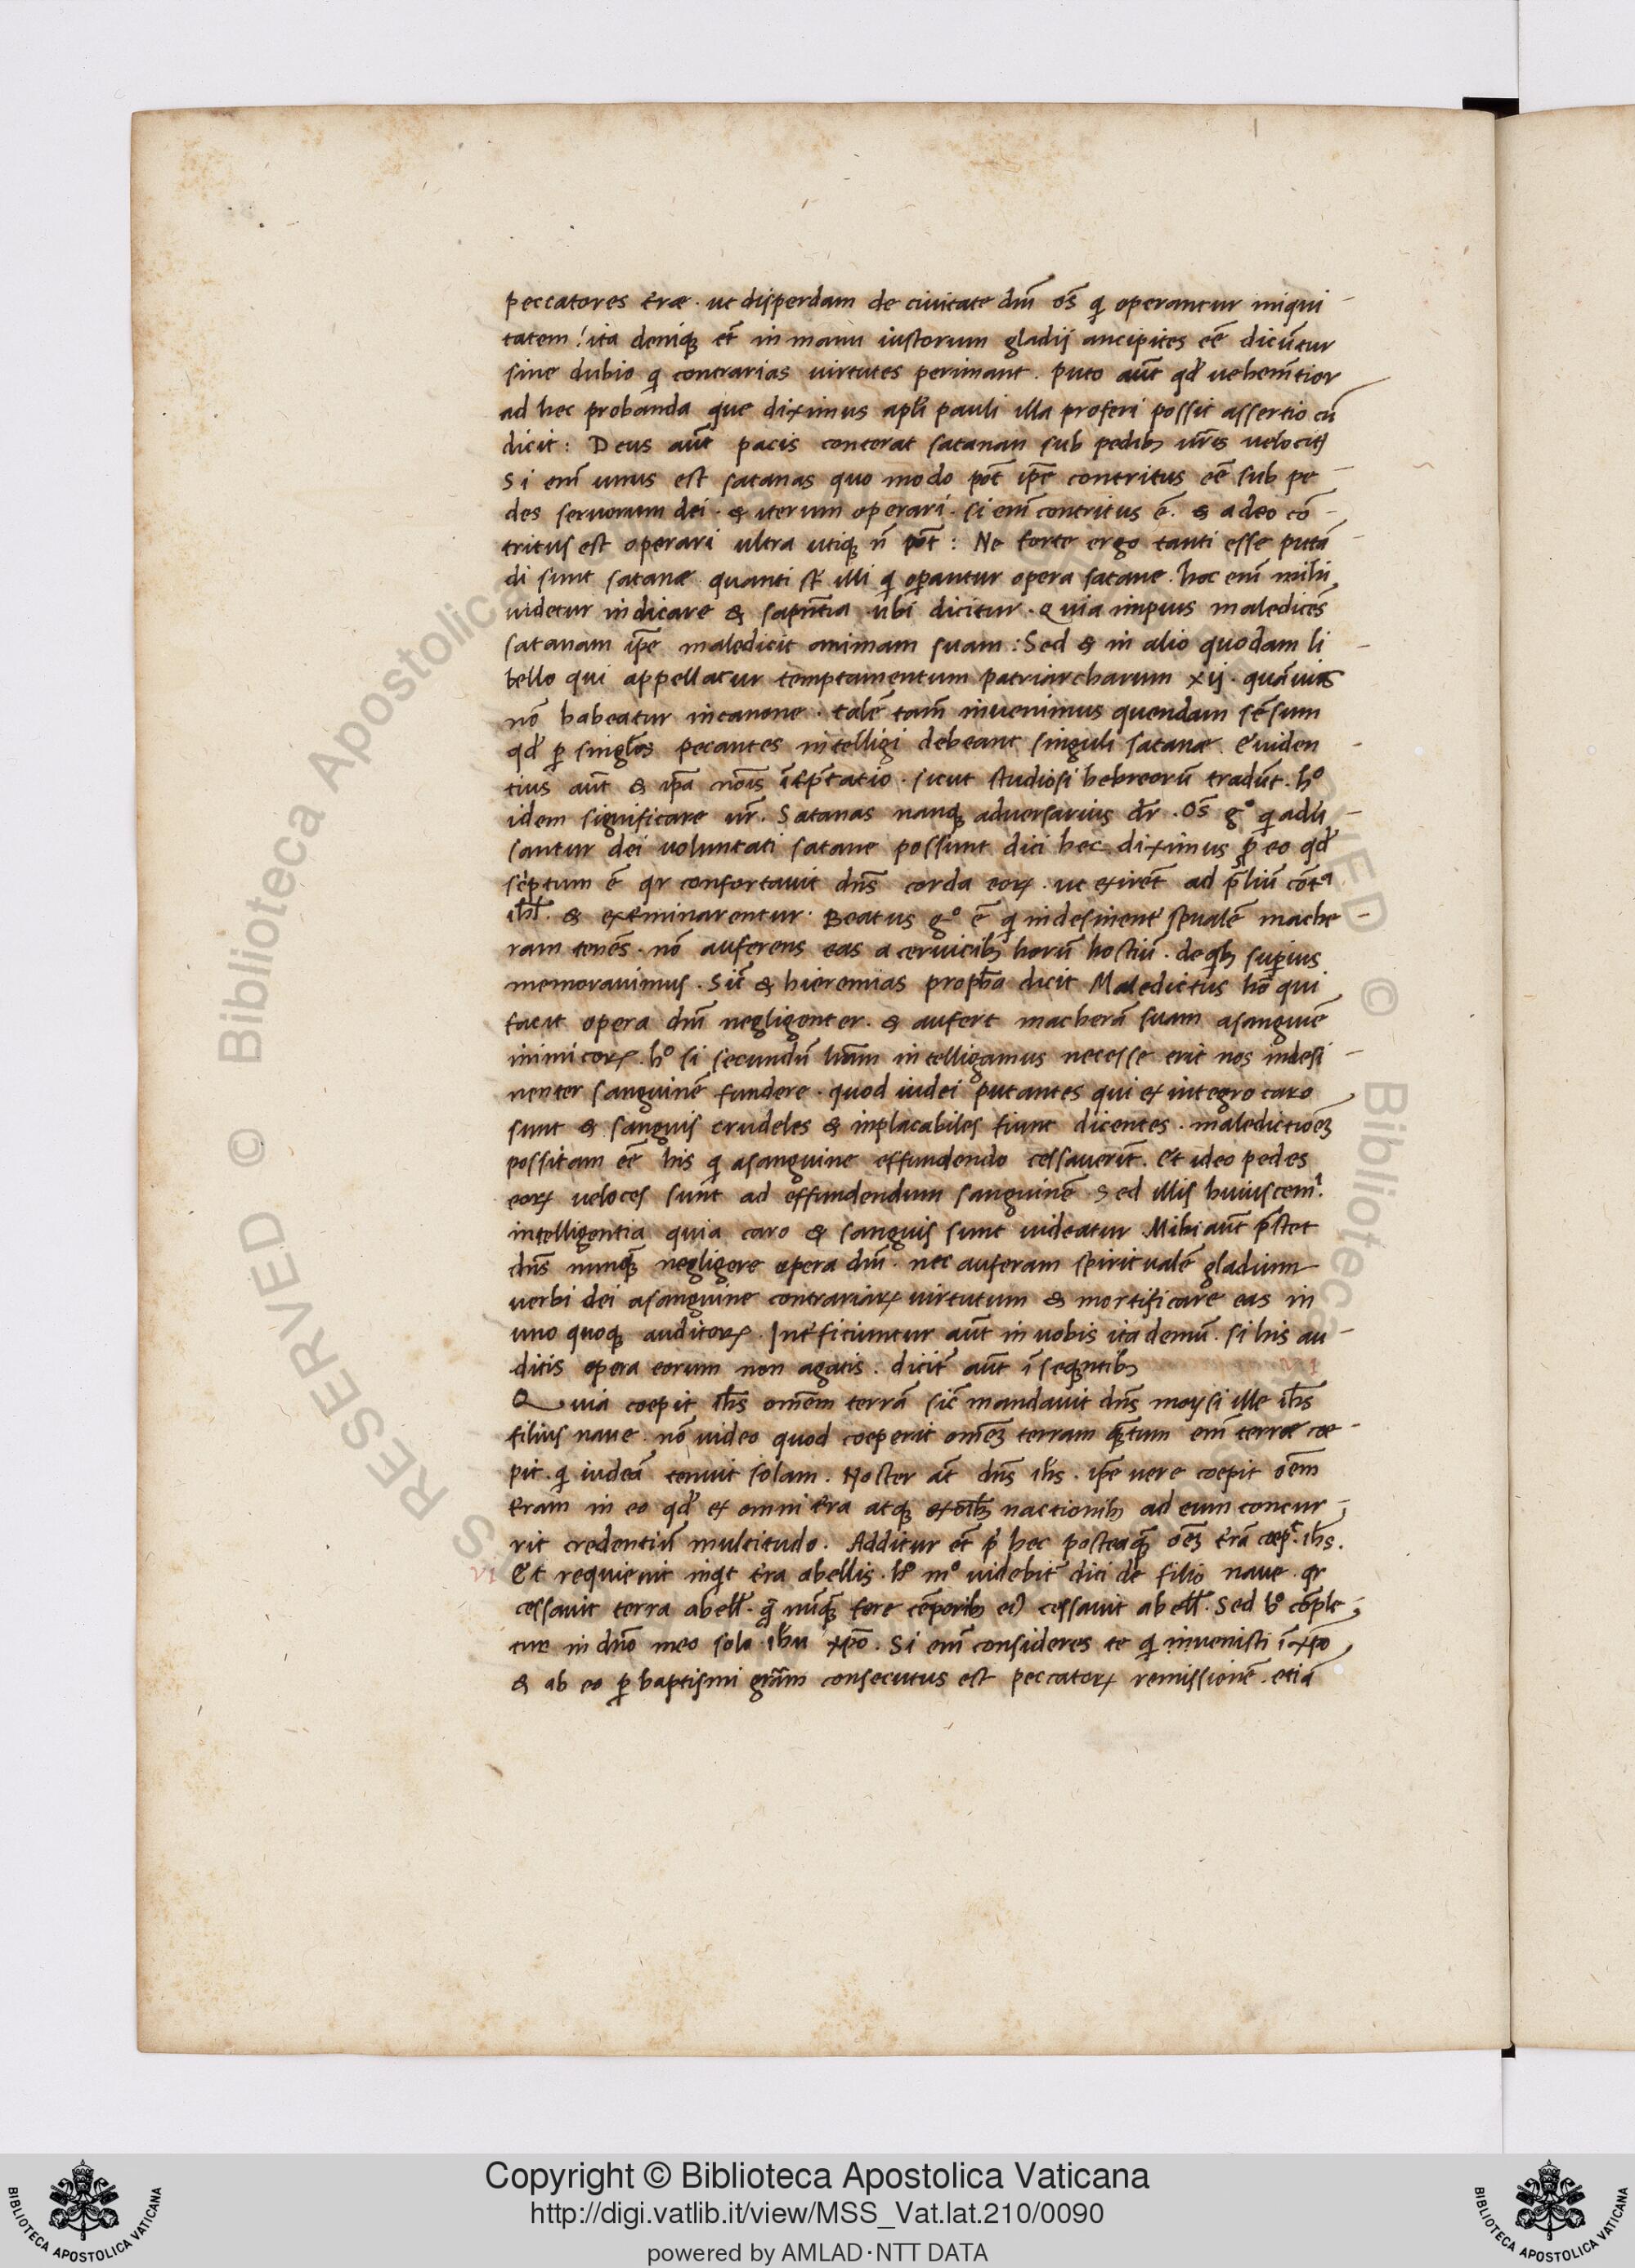 peccatores tr̄æ. ut disperdam de ciuitate dn̄i oēs qͥ operantur iniqui-
tatem! ita deniqꝫ et̄ in manu iustorum gladij ancipites eē dicūtur
sine dubio qͥ contrarias uirtutes perimant. puto aūt qd̓ uehem̄tior
ad hec probanda que diximus apl̓i pauli illa proferi possit assertio cū
dicit: Deus aūt pacis conterat satanan sub pedibꝫ ur̄is uelocit̓
Si eni᷄ unus est satanas quo modo pōt ip̄e contritus eē sub pe-
des seruorum dei. & iterum operari. si eni᷄ contritus ē. & adeo cō-
tritus est operari ultra utiqꝫ n̄ pōt: Ne forte ergo tanti esse putā-
di sunt satanæ quanti st̄ illi qͥ oꝑantur opera satane. hoc eni᷄ mihi
uidetur indicare & sapn̄tia ubi dicitur. Quia impius maledicēs
satanam ip̄e maledicit animam suam: Sed & in alio quodam li-
bello qui appellatur temptamentum patriarcharum xij. quāuis
nō habeatur in canone. talē tam̄ inuenimus quendam sēsum
qd̓ ꝑ singl̓os pecantes intelligi debeant singuli satanæ. Euiden-
tius aūt & ip̄a nōis īt̓p̄tatio. sicut studiosi hebreorū tradūt. hͦ
idem significare ur̄. Satanas nanqꝫ aduersarius dr̄. Oēs gͦ qͥ adu̓-
santur dei uoluntati satane possunt dici hec diximus ꝑ eo qd̓
scͥptum ē qr confortauit dn̄s corda eoꝝ. ut exirēt ad p̄liū cōtᵃ
ihl̄. & ext̓minarentur. Beatus gͦ ē qͥ indesinent̓ sp̄ualē mache-
ram tenēs. nō auferens eas a ceruicibꝫ horū hostiū. de qͥbꝫ suꝑius
memorauimus. Sic̄ & hieremias proph̄a dicit Maledictus hō qui
facit opera dn̄i negligenter. & aufert macherā suam a sanguiē
inimicoꝝ. hͦ si secundū lr̄am intelligamus necesse erit nos indesi-
nenter sanguinē fundere. quod iudei putantes qui ex integro caro
sunt & sanguis crudeles & inplacabiles fiunt dicentes. maledictiōeꝫ
possitam eē his qͥ a sanguine effundendo cessauerīt. Et ideo pedes
eoꝝ ueloces sunt ad effundendum sanguinē Sed illis huiuscemͥ.
intelligentia quia caro & sanguis sunt uideatur Mihi aūt p̄stet
dn̄s nunqꝫ̄ negligere opera dn̄i. nec auferam spiritualē gladium
uerbi dei a sanguine contrariaꝝ uirtutum & mortificare eas in
uno quoqꝫ auditoꝝ. Int̓ficiuntur aūt in uobis ita demū. si his au-
ditis opera eorum non agatis. dicit̓ aūt ī seqn̄tibꝫ
Quia coepit ih̄s omēm terrā sic̄ mandauit dn̄s moysi ille ih̄s
filius naue. nō uideo quod coeperit omēꝫ terram qꝫ̄tum eni᷄ terræ coe-
pit. qͥ iudeā tenuit solam. Noster at̄ dn̄s ih̄s. ip̄e uere coepit ōem
t̓ram in eo qd̓ ex omni t̓ra atqꝫ ex oīb; nactionibꝫ ad eum concur-
rit credentiū multitudo. Additur et̄ p̓ hec posteaqꝫ̄ ōeꝫ t̓rā coepᵗ. ih̄s.
VI Et requieuit inqͥt t̓ra a bellis. hͦ mͦ uidebit̓ dici de filio naue. qr
cessauit terra a bell̓. qꝫ̄ nūqꝫ̄ fere tēporibꝫ ei᷄ cessauit a bell̓. Sed hͦ cōple-
tur in dn̄o meo solo ih̄u xp̄o. Si eni᷄ consideres te qͥ inuenisti ī xp̄o
& ab eo ꝑ baptismi gr̄am consecutus est peccatoꝝ remissionē. etiā
RESERVED © Biblioteca Apostolica
Copyright © Biblioteca Apostolica Vaticana
http://digi.vatlib.it/view/MSS_Vat.lat.210/0090
powered by AMLAD·NTT DATA
BIBLIOTECA APOSTOLICA VATICANA
BIBLIOTECA APOSTOLICA VATICANA